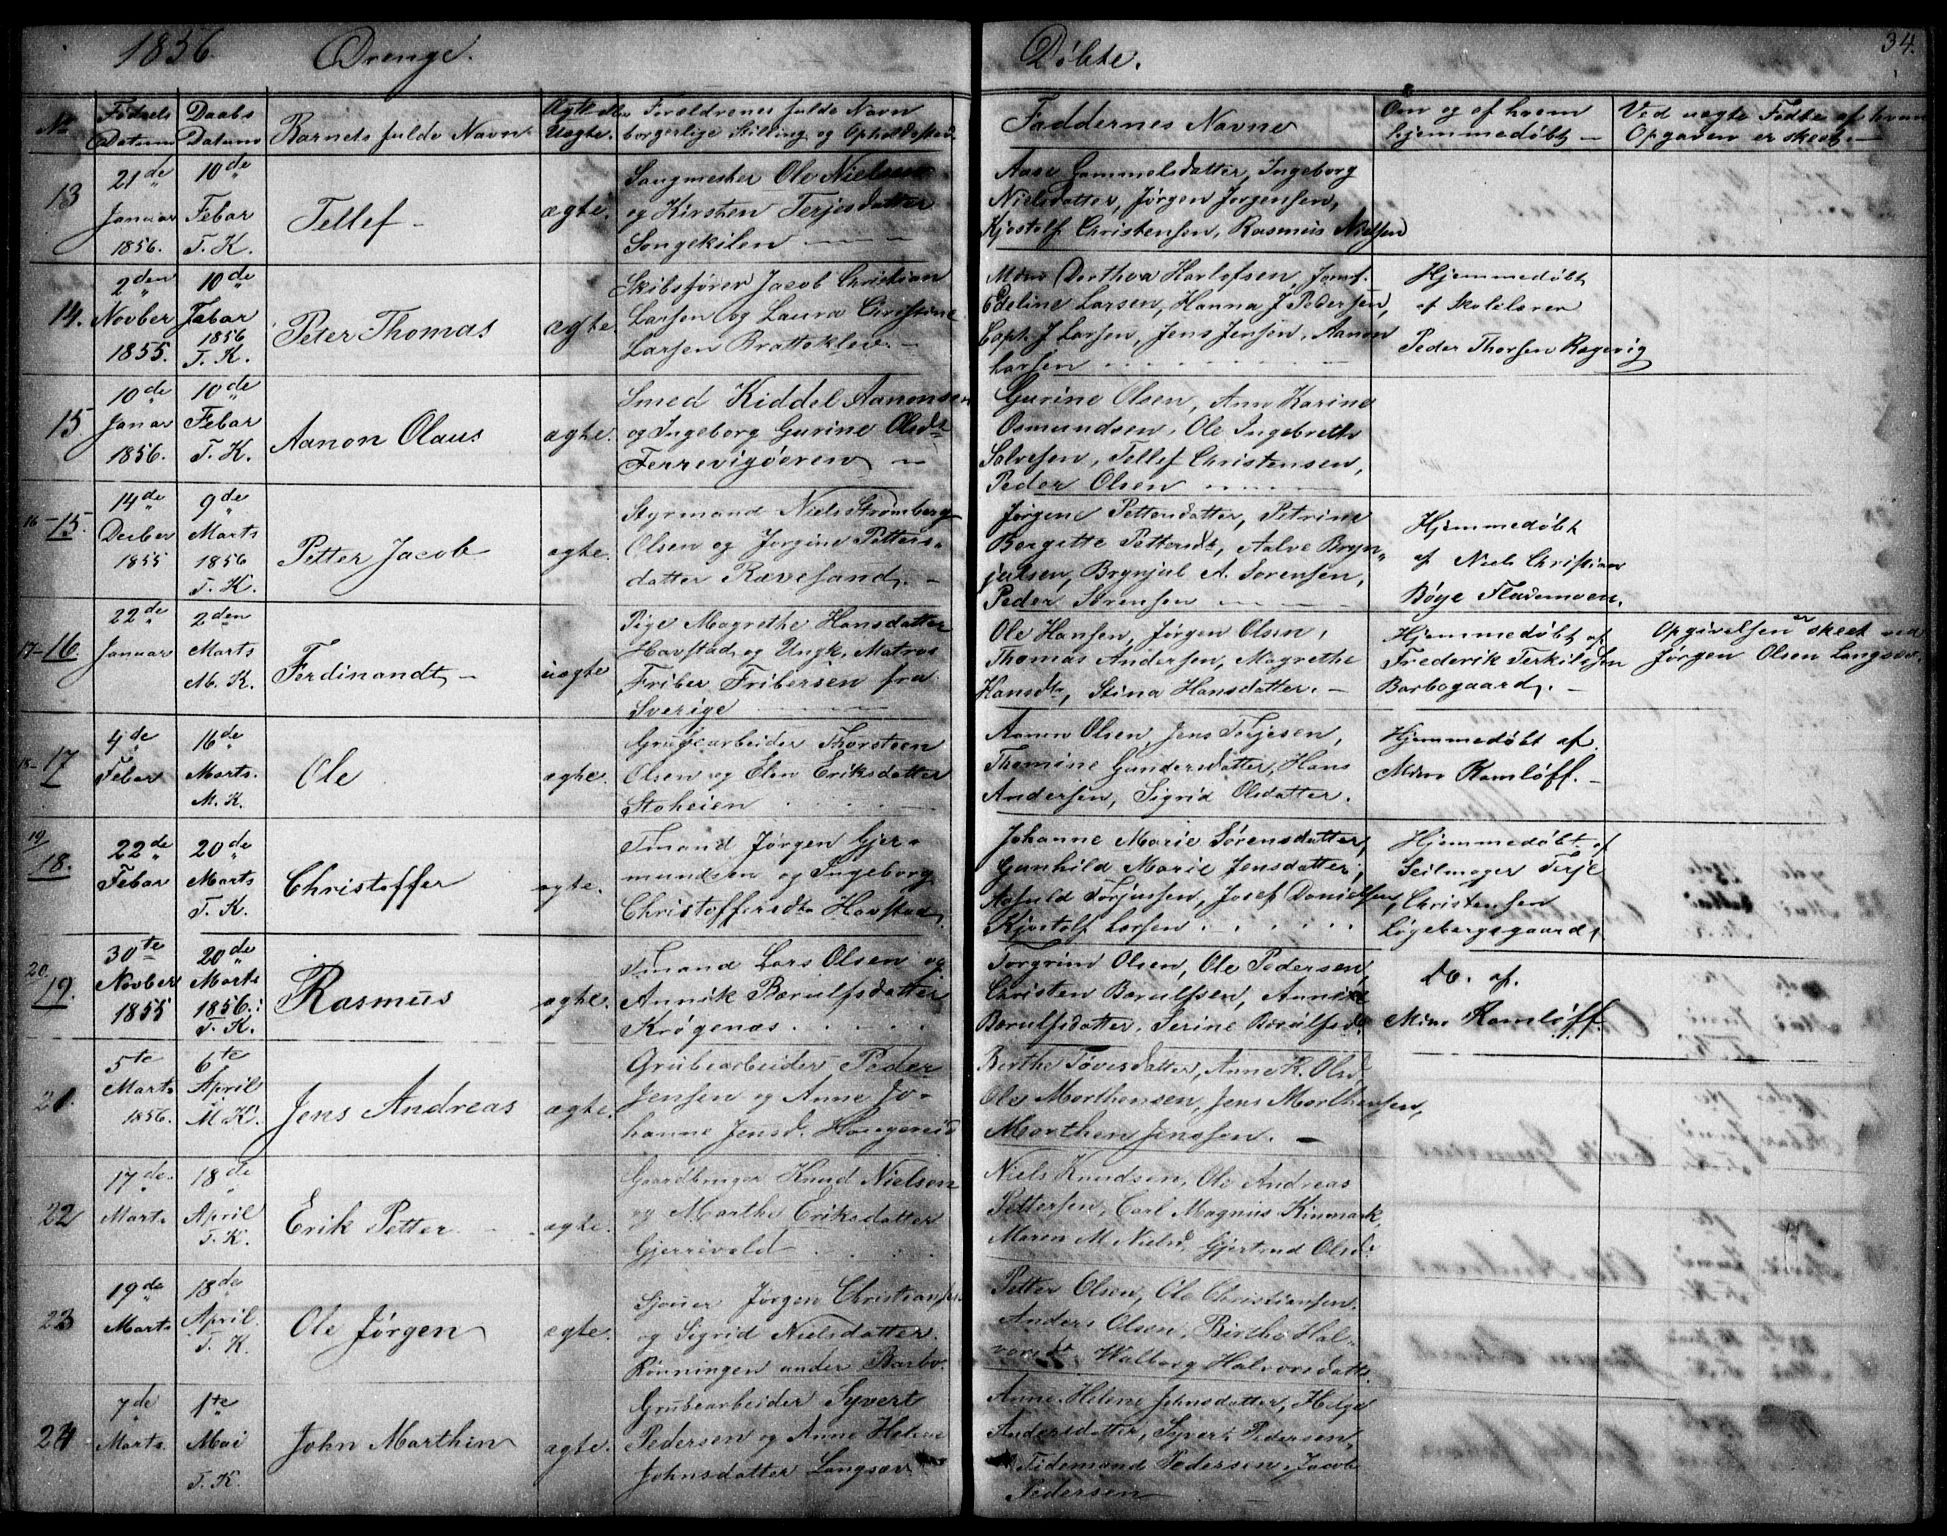 1856. Drenge. Döbte. 34.
No
Födsels Datum
Daabs Datum
Barnets fulde Navn
Ægte eller Uægte.
Forældrenes fulde Navn
borgerlige Stilling og Opholdssted
Faddernes Navne
Om og af hvem
hjemmedöbt —
Ved uægte Födte af hvem
Opgaven er skeet. —
13
21de Januar 1856.
10de Febar T. K.
Tellef —
ægte.
Ole Nielsen
og Kirsten Terjesdatter
Songekilen
Aase Gammelsdatter, Ingeborg
Nielsdatter, Jörgen Jörgensen,
Kjostolf Christensen, Rasmus Nielsen
14.
2den Novber 1855.
10de Febar 1856 T. K.
Peter Thomas
ægte.
Skibsförer Jacob Christian
Larsen og Laura Christine
Larsen Bratteklev. —
Dorthea Harlofsen, Jomf.
Edeline Larsen, Hanna J Pedersen,
Capt. J Larsen, Jens Jensen, Aanon
Larsen
Hjemmedöbt
af Skolelærer
Peder Thorsen Rægevig
15
10de Janar 1856.
10de Febar T. K.
Aanon Olaus
ægte.
Smed Kiddel Aanonsen
og Ingeborg Gurine Olsdt
Ferrevigöeren —
Gurine Olsen, Ann Karine
Osmundsen, Ole Ingebreth
Salvesen, Tellef Christensen,
Peder Olsen
16 – 15.
14de Decber 1855
9de Marts 1856 T. K.
Petter Jacob
ægte.
Styrmand Niels Strömberg
Olsen og Jörgine Petters-
datter Rævesand. —
Jörgine Pettersdatter, Petrine
Bergitte Pettersdt, Aalve Bryn-
julsen, Brynjul A. Sörensen,
Peder Sörensen
Hjemmedöbt
af Niels Christian
Böye Fladenmoen.
17 – 16.
22de Januar
2den Marts M. K.
Ferdinandt —
uægte
Pige Magrethe Hansdatter
Havstad og Ungk. Matros
Friber Fribersen fra
Sverige
Ole Hansen, Jörgen Olsen,
Thomas Andersen, Magrethe
Hansdtr, Stina Hansdatter. —
Hjemmedöbt af
Frederik Terkilssen
Barbogaard. —
Opgivelsen er skeet ved
Jörgen Olsen Langsæv.
18 – 17
4de Febar
16de Marts. M. K.
Ole
ægte.
Grubearbeider Thorsteen
Olsen og Elen Eriksdatter
Stoheien
Aanon Olsen, Jens Terjesen,
Thomine Gundersdatter, Hans
Andersen, Sigrid Olsdatter.
Hjemmedöbt af
Ramlöff. —
19 / 18.
22de Febar
20de Marts T. K.
Christoffer
ægte.
Tmand Jörgen Gjer-
mundsen og Ingeborg
Christoffersdt. Havstad
Johanne Marie Sörensdatter,
Gunhild Marie Jensdatter,
Torjussen, Josef Danielsen,
Kjostolf Larsen
Hjemmedöbt af
Seilmager Terje
Christensen
Lögebergsgaard
20. 19.
30te Novber 1855
20de Marts 1856. T. K.
Rasmus
ægte.
Tmand Lars Olsen og
Annik Bærulfsdatter
Krögenæs.
Torgrim Olsen, Ole Pedersen,
Christen Bærulfsen, Annike
Bærulfsdatter, Serine Bærulfsdt
do. af.
Ramlöff.
21.
5te Marts 1856.
6te April M. K.
Jens Andreas
ægte.
Grubearbeider Peder
Jensen og Anne Jo-
hanne Jensd. Hangereid
Berthe Tovesdatter, Anne K. Olsd
Ole Morthensen, Jens Morthensen,
Morthen Jenssen. —
22
17de Marts
18de April T. K.
Erik Petter
ægte.
Gaardbruger Knud Nielsen
og Marthe Eriksdatter
Gjerrevald
Niels Knudsen, Ole Andreas
Pettersen, Carl Magnus Kinmark,
Maren M Nielsd, Gjertrud Olsd.
23
19de Marts
18de April. T. K.
Ole Jörgen
ægte.
Sjouer Jörgen Christiansen
og Sigrid Nielsdatter.
Rönningen under Barbo.
Petter Olsen, Ole Christiansen.
Anders Olsen, Birthe Hal-
vorsdt. Walborg Halvorsdatter.
24
7de Marts.
1te Mai T. K.
John Marthin
ægte.
Grubearbeider Syvert
Pedersen og Anne Helene
Johnsdatter Langsæv
Anne Helene Johnsdatter, Helga
Andersdatter, Syvert Pedersen,
Tidemand Pedersen, Jacob
Pedersen